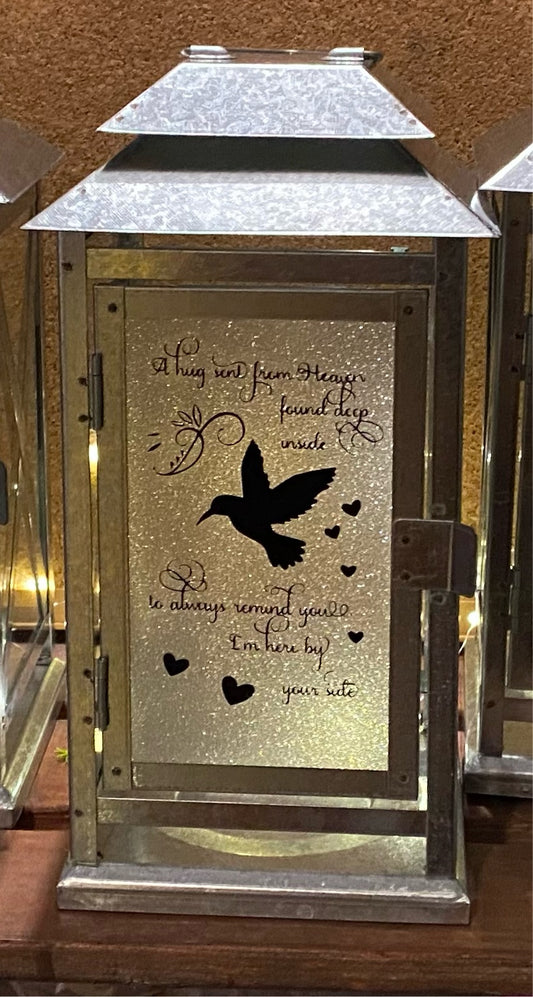 A hug sent from Heaven
found deep
inside
to always remind you
I'm here by
your side